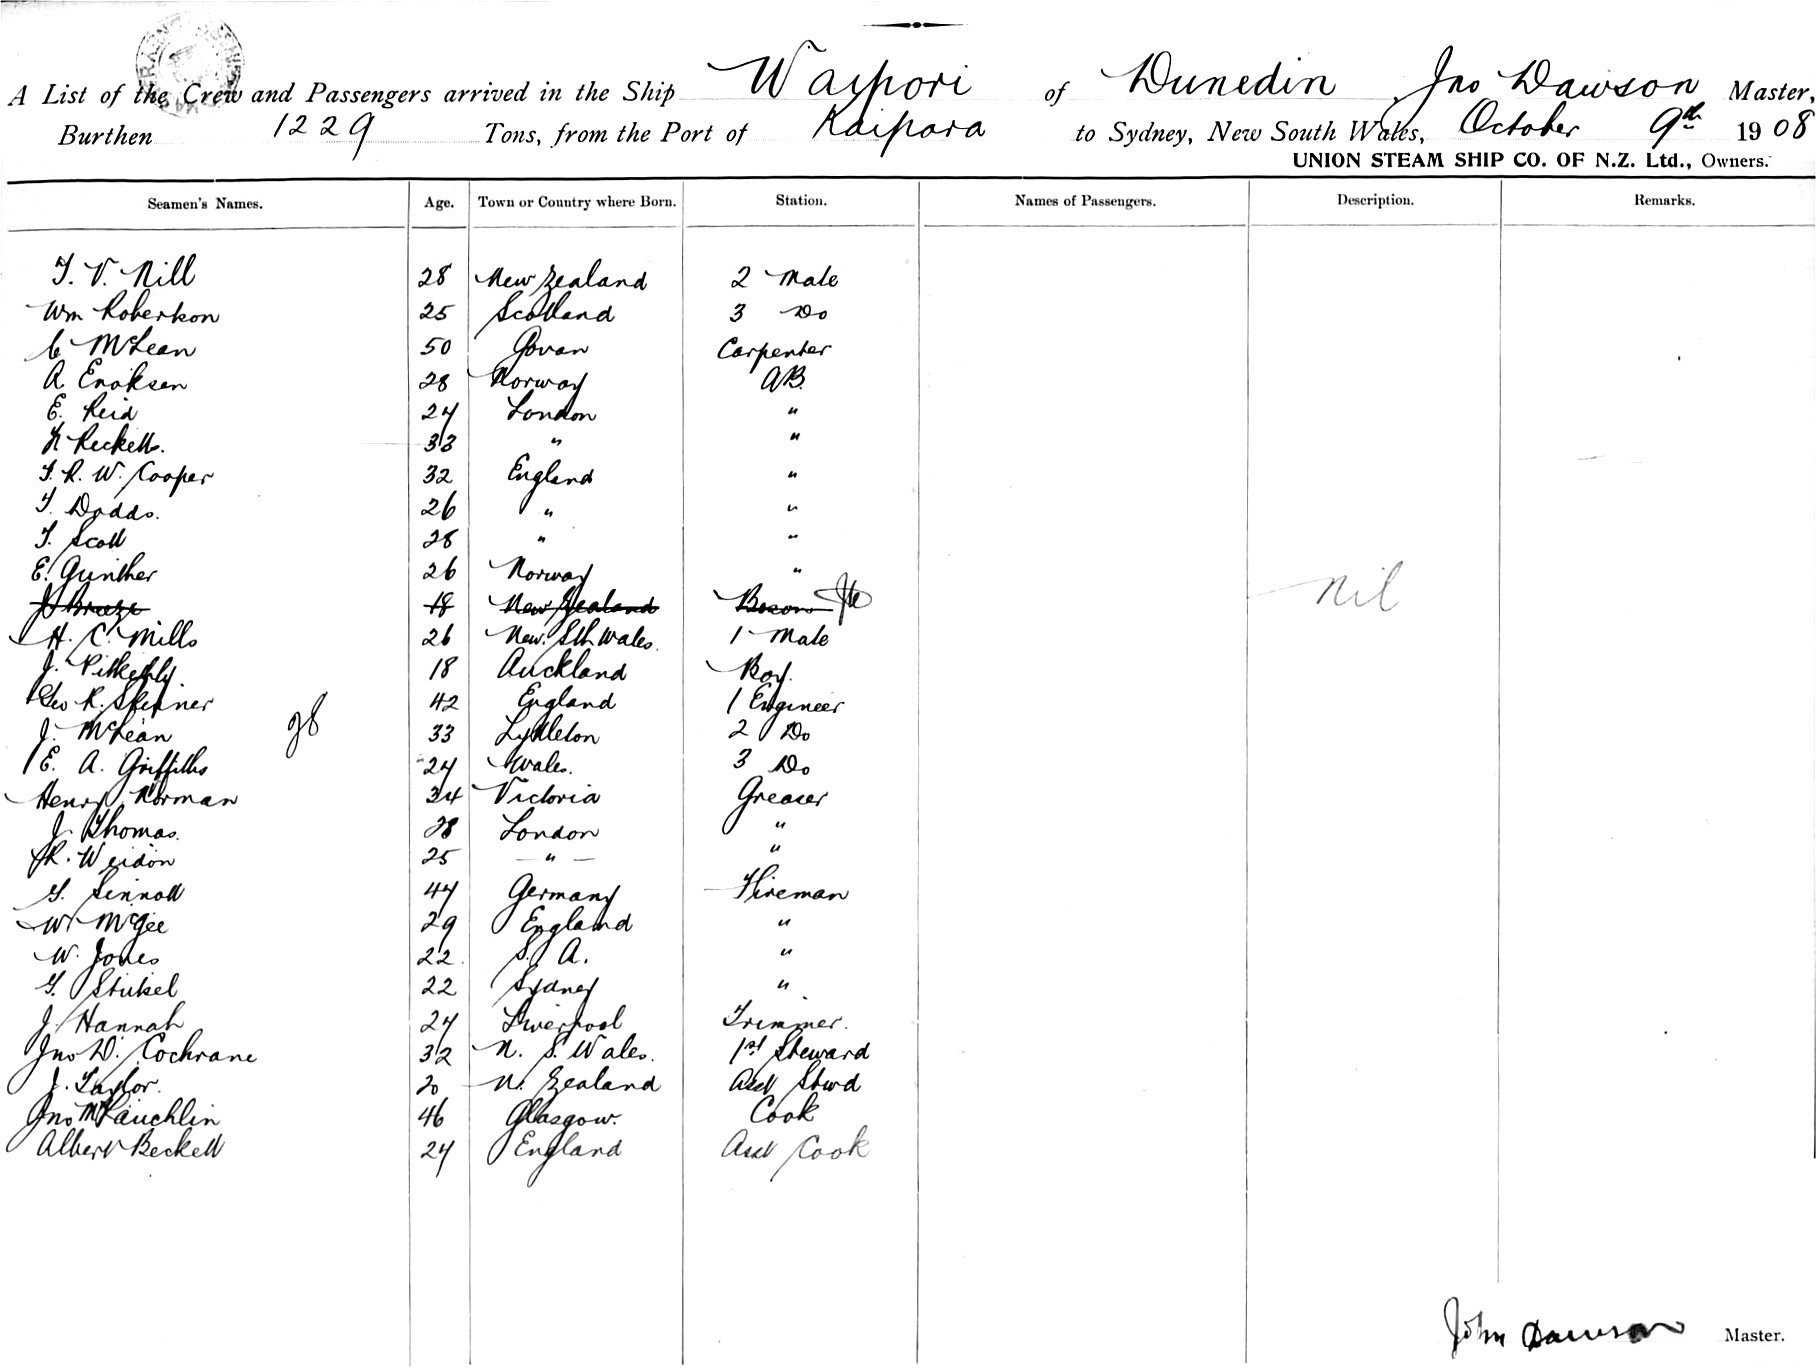 A List of the Crew and Passengers arrived in the Ship Waipori of Dunedin Jno Dawson Master,
Burthen 1229 Tons, from the Port of Kaipara to Sydney, New South Wales, October 9th 1908
UNION STEAM SHIP CO. OF N.Z. Ltd., Owners.
Seamen's Names. Age. Town or Country where Born. Station. Names of Passengers. Description. Remarks.
T. V. Nill 28 New Zealand 2 Mate
Wm Robertson 25 Scotland 3 Do
C McLean 50 Govan Carpenter
A Eriksen 28 Norway AB.
E. Reid 24 London "
Recketts. 33 " "
T. R. W. Cooper 32 England "
T. Dodds. 26 " "
T. Scott 28 " "
E. Gunther 26 Norway "
Breeze 18 New Zealand
Nil
H. C. Mills 26 New. Sth Wales. 1 Mate
J. Pitkethly 18 Auckland Boy.
Geo R. Skinner 42 England 1 Engineer
J. McLean 33 Lyttleton 2 Do
28
E. A. Griffiths 24 Wales. 3 Do
Henry Norman 34 Victoria Greaser
J. Thomas. 28 London "
R. Weidon 25 — " — "
Sinnott 44 Germany Fireman
W McGee 29 England "
W. Jones 22 S. A. "
Stukel 22 Sydney "
J. Hannah 24 Liverpool Trimmer.
Jno D. Cochrane 32 N. S. Wales. 1st Steward
J. Taylor. 20 N. Zealand Asst Stwd
Jno McLauchlin 46 Glasgow. Cook
Albert Beckett 24 England Asst Cook
John Dawson Master.